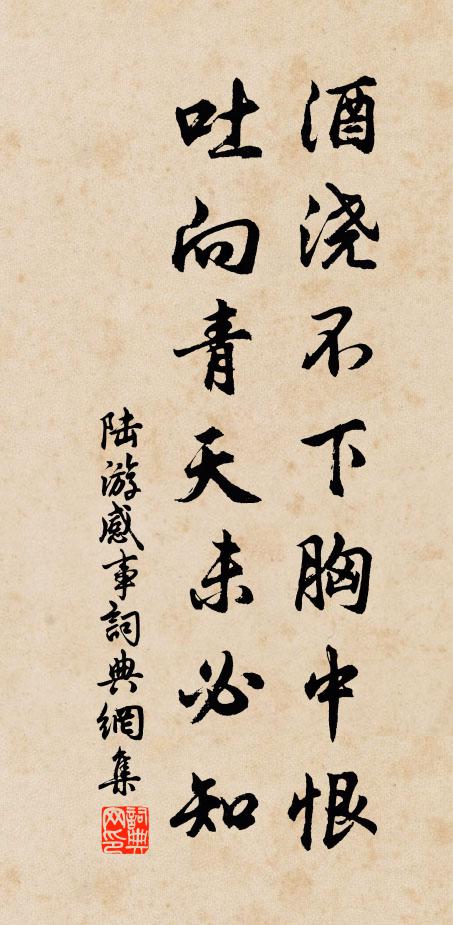 酒浇不下胸中恨
吐向青天未必知
陆游感事詞典網集
詞典网印